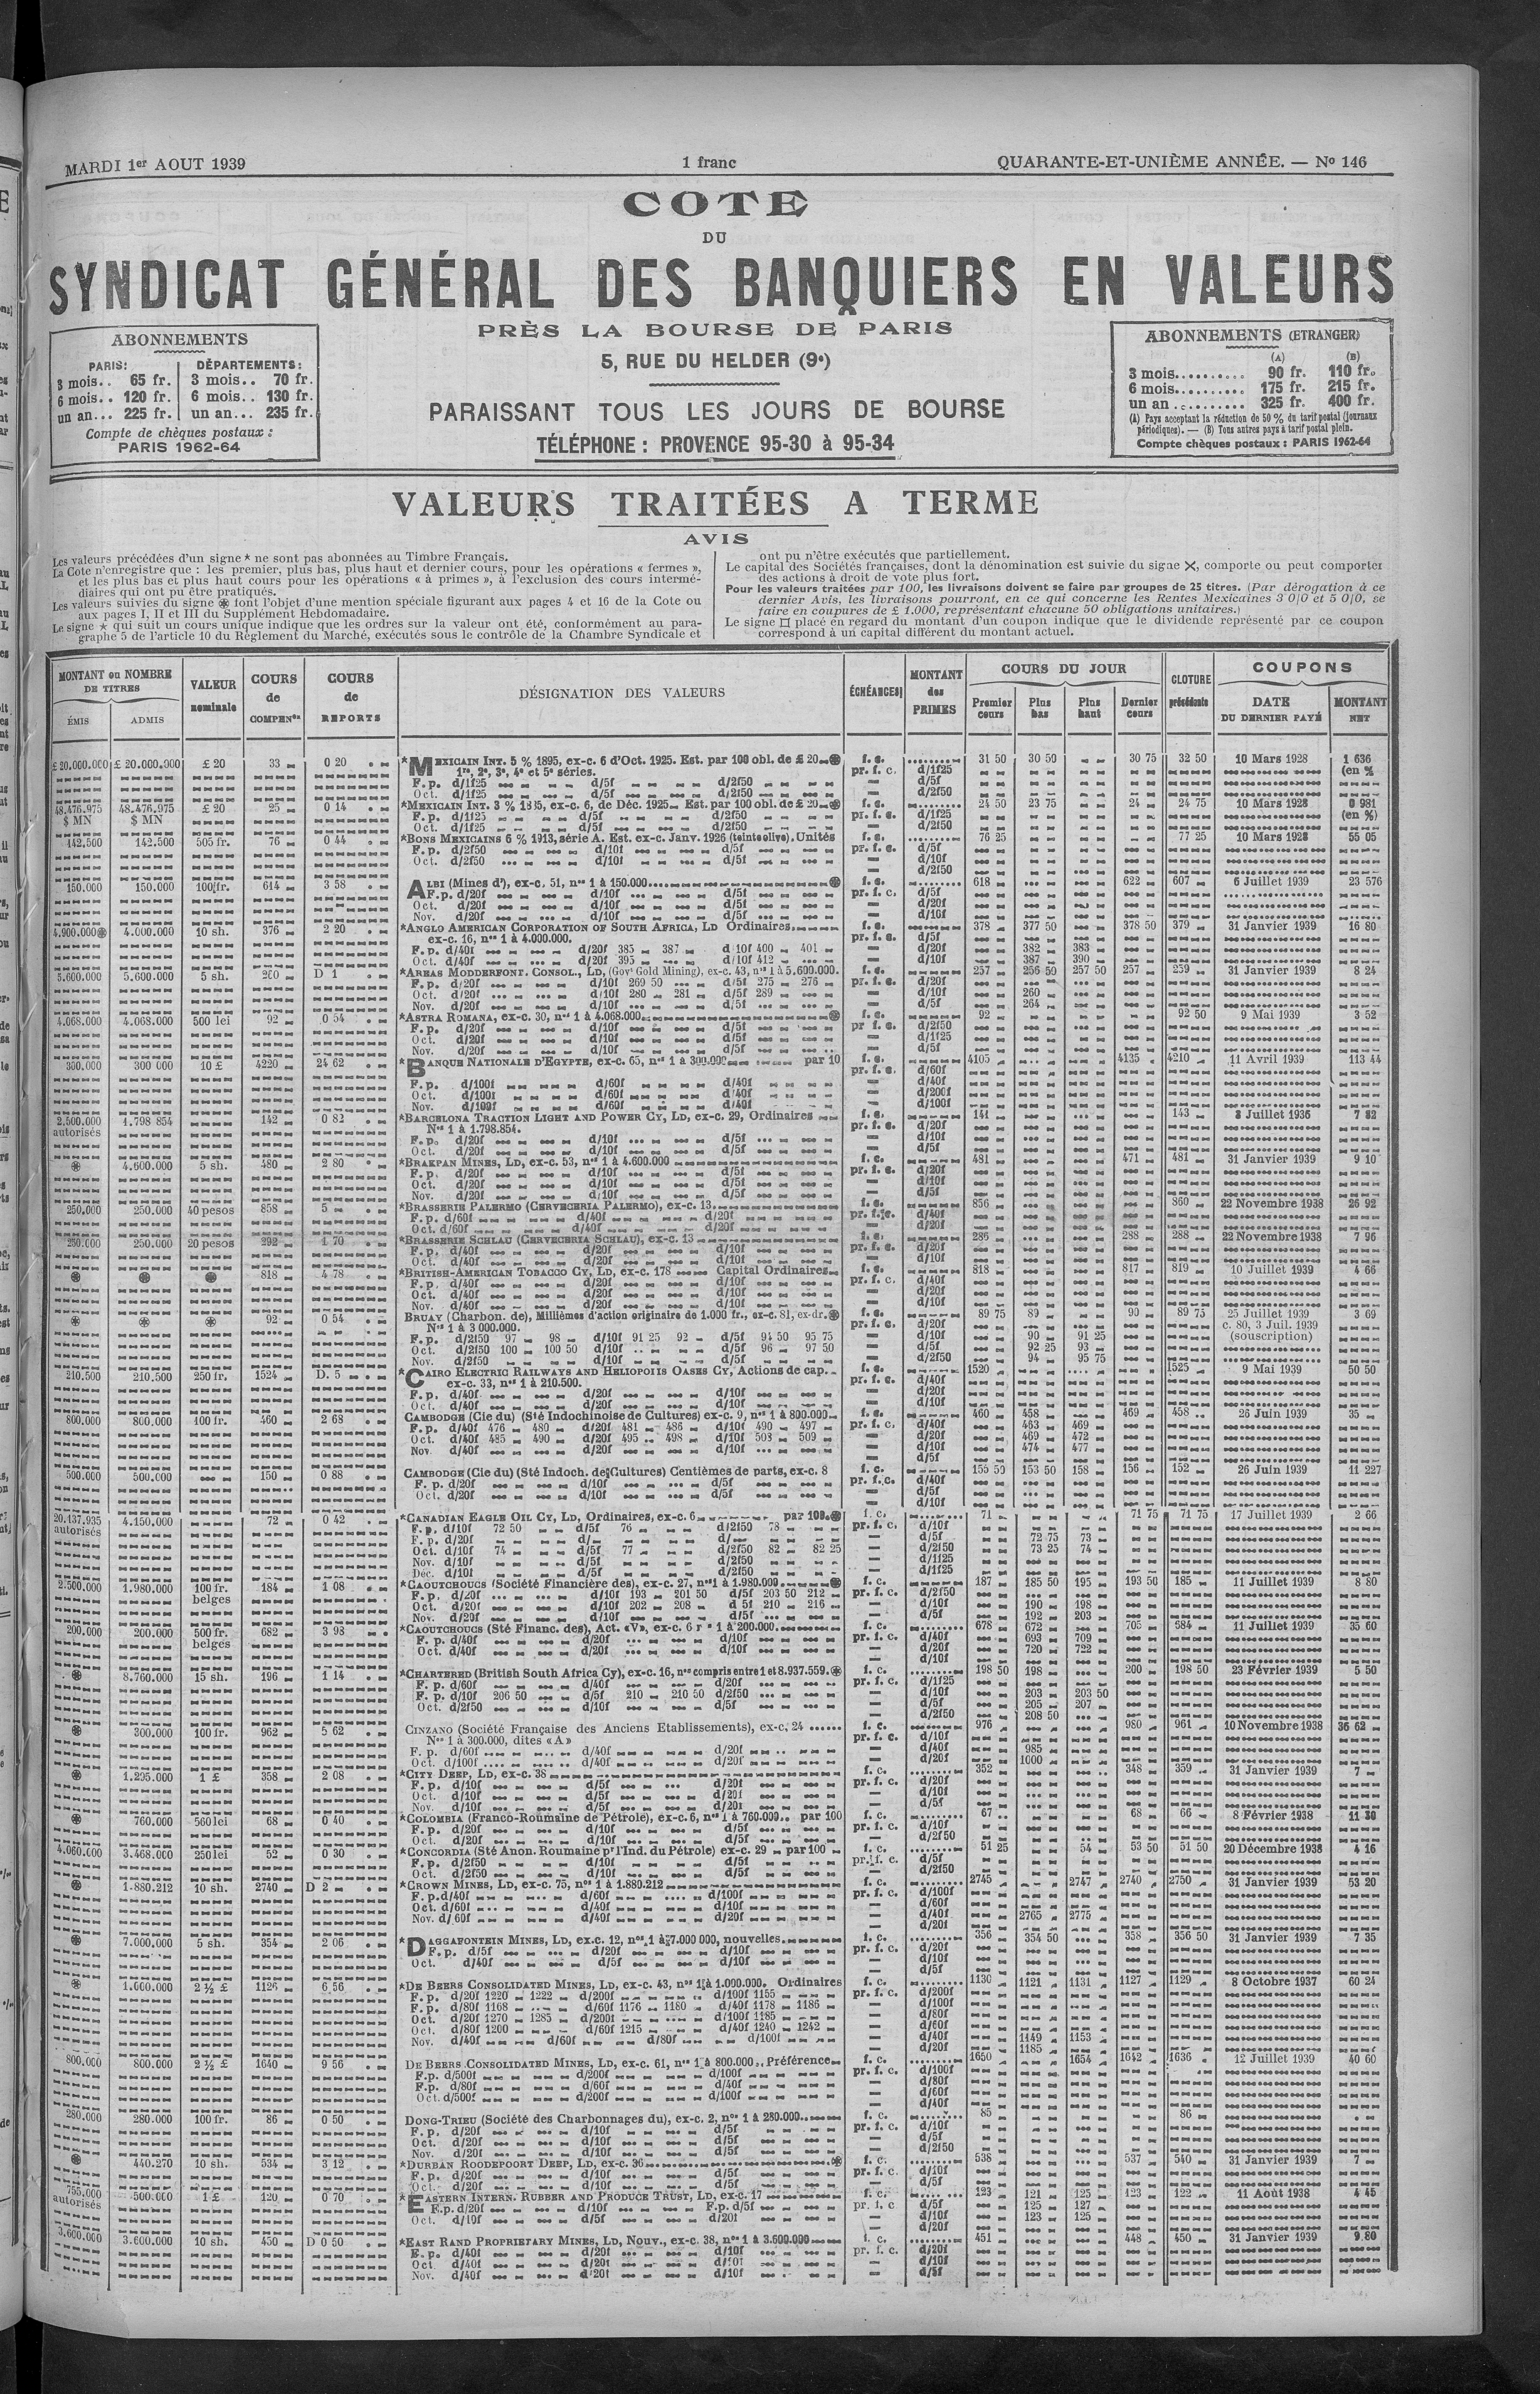 MARDI 1er AOUT 1939
1 franc
QUARANTE-ET-UNIÈME ANNÉE. — No 146
COTE
DU
SYNDICAT GÉNÉRAL DES BANQUIERS EN VALEURS
PRÈS LA BOURSE DE PARIS
5, RUE DU HELDER (9e)
PARAISSANT TOUS LES JOURS DE BOURSE
TÉLÉPHONE : PROVENCE 95-30 à 95-34
ABONNEMENTS
PARIS: DÉPARTEMENTS:
3 mois.. 65 fr. 3 mois.. 70 fr.
6 mois.. 120 fr. 6 mois.. 130 fr.
un an... 225 fr. un an... 235 fr.
Compte de chèques postaux :
PARIS 1962-64
ABONNEMENTS (ETRANGER)
(A) (B)
3 mois.......... 90 fr. 110 fr.
6 mois.......... 175 fr. 215 fr.
un an .......... 325 fr. 400 fr.
(A) Pays acceptant la réduction de 50 % du tarif postal (journaux
périodiques). — (B) Tous autres pays à tarif postal plein.
Compte chèques postaux : PARIS 1962-64
VALEURS TRAITÉES A TERME
AVIS
Les valeurs précédées d'un signe * ne sont pas abonnées au Timbre Français.
La Cote n'enregistre que : les premier, plus bas, plus haut et dernier cours, pour les opérations « fermes »,
et les plus bas et plus haut cours pour les opérations « à primes », à l'exclusion des cours intermé-
diaires qui ont pu être pratiqués.
Les valeurs suivies du signe ⊛ font l'objet d'une mention spéciale figurant aux pages 4 et 16 de la Cote ou
aux pages I, II et III du Supplément Hebdomadaire.
Le signe ★ qui suit un cours unique indique que les ordres sur la valeur ont été, conformément au para-
graphe 5 de l'article 10 du Règlement du Marché, exécutés sous le contrôle de la Chambre Syndicale et
ont pu n'être exécutés que partiellement.
Le capital des Sociétés françaises, dont la dénomination est suivie du signe ✕, comporte ou peut comporter
des actions à droit de vote plus fort.
Pour les valeurs traitées par 100, les livraisons doivent se faire par groupes de 25 titres. (Par dérogation à ce
dernier Avis, les livraisons pourront, en ce qui concerne les Rentes Mexicaines 3 0/0 et 5 0/0, se
faire en coupures de £ 1.000, représentant chacune 50 obligations unitaires.)
Le signe □ placé en regard du montant d'un coupon indique que le dividende représenté par ce coupon
correspond à un capital différent du montant actuel.
MONTANT ou NOMBRE DE TITRES
ÉMIS ADMIS
VALEUR nominale
COURS de COMPENon
COURS de REPORTS
DÉSIGNATION DES VALEURS
ÉCHÉANCES
MONTANT des PRIMES
COURS DU JOUR
Premier cours Plus bas Plus haut Dernier cours
CLOTURE précédente
COUPONS
DATE DU DERNIER PAYÉ
MONTANT NET
£ 20.000.000 £ 20.000.000 £ 20 33 0 20 *MEXICAIN INT. 5 % 1895, ex-c. 6 d'Oct. 1925. Est. par 100 obl. de £ 20 ⊛ f. c. 31 50 30 50 30 75 32 50 10 Mars 1928 1 636
1re, 2e, 3e, 4e et 5e séries. pr. f. c. d/1f25 (en %
F. p. d/1f25 d/5f d/2f50 — d/5f
Oct. d/1f25 d/5f d/2f50 — d/2f50
48.476.975 48.476.975 £ 20 25 0 14 *MEXICAIN INT. 3 % 1885, ex-c. 6, de Déc. 1925 Est. par 100 obl. de £ 20 ⊛ f. c. 24 50 23 75 24 24 75 10 Mars 1928 0 981
$ MN $ MN F. p. d/1f25 d/5f d/2f50 pr. f. c. d/1f25 (en %)
Oct. d/1f25 d/5f d/2f50 — d/2f50
142.500 142.500 505 fr. 76 0 44 *BONS MEXICAINS 6 % 1913, série A. Est. ex-c. Janv. 1926 (teinte olive). Unités f. c. 76 25 77 25 10 Mars 1928 55 05
F. p. d/2f50 d/10f d/5f pr. f. c. d/5f
Oct. d/2f50 d/10f d/5f — d/10f
150.000 150.000 100 fr. 614 3 58 ALBI (Mines d'), ex-c. 51, nos 1 à 150.000 ⊛ f. c. 618 622 607 6 Juillet 1939 23 576
F. p. d/20f d/10f d/5f pr. f. c. d/5f
Oct. d/20f d/10f d/5f — d/20f
Nov. d/20f d/10f d/5f — d/10f
4.900.000⊛ 4.000.000 10 sh. 376 2 20 *ANGLO AMERICAN CORPORATION OF SOUTH AFRICA, LD Ordinaires f. c. 378 377 50 378 50 379 31 Janvier 1939 16 80
ex-c. 16, nos 1 à 4.000.000. pr. f. c. d/5f
F. p. d/40f d/20f 385 387 d/10f 400 401 — d/20f 382 383
Oct. d/40f d/20f 395 d/10f 412 — d/10f 387 390
5.600.000 5.600.000 5 sh. 260 D 1 *AREAS MODDERFONT. CONSOL., LD, (Govt Gold Mining), ex-c. 43, nos 1 à 5.600.000. f. c. 257 256 50 257 50 257 259 31 Janvier 1939 8 24
F. p. d/20f d/10f 269 50 d/5f 275 276 pr. f. c. d/20f
Oct. d/20f d/10f 280 281 d/5f 289 — d/10f 260
Nov. d/20f d/10f d/5f — d/5f 264
4.068.000 4.068.000 500 lei 92 0 54 *ASTRA ROMANA, ex-c. 30, nos 1 à 4.068.000 ⊛ f. c. 92 92 50 9 Mai 1939 3 52
F. p. d/20f d/10f d/5f pr f. c. d/2f50
Oct. d/20f d/10f d/5f — d/1f25
Nov. d/20f d/10f d/5f — d/5f
300.000 300 000 10 £ 4220 24 62 *BANQUE NATIONALE D'EGYPTE, ex-c. 65, nos 1 à 300.000 par 10 f. c. 4105 4135 4210 11 Avril 1939 113 44
pr. f. c. d/60f
F. p. d/100f d/60f d/40f — d/40f
Oct. d/100f d/60f d/40f — d/200f
Nov. d/100f d/60f d/40f — d/100f
2.500.000 1.798 854 142 0 82 *BARCELONA TRACTION LIGHT AND POWER CY, LD, ex-c. 29, Ordinaires f. c. 141 143 3 Juillet 1936 7 82
autorisés Nos 1 à 1.798.854. pr. f. c. d/20f
F. p. d/20f d/10f d/5f — d/10f
Oct. d/20f d/10f d/5f — d/5f
⊛ 4.600.000 5 sh. 480 2 80 *BRAKPAN MINES, LD, ex-c. 53, nos 1 à 4.600.000 f. c. 481 471 481 31 Janvier 1939 9 10
F. p. d/20f d/10f d/5f pr. f. c. d/20f
Oct. d/20f d/10f d/5f — d/10f
Nov. d/20f d/10f d/5f — d/5f
250.000 250.000 40 pesos 858 5 *BRASSERIE PALERMO (CERVECERIA PALERMO), ex-c. 13 f. c. 856 860 22 Novembre 1938 26 92
F. p. d/60f d/40f d/20f pr. f. c. d/40f
Oct. d/60f d/40f d/20f — d/20f
250.000 250.000 20 pesos 292 1 70 *BRASSERIE SCHLAU (CERVECERIA SCHLAU), ex-c. 13 f. c. 286 288 288 22 Novembre 1938 7 96
F. p. d/40f d/20f d/10f pr. f. c. d/20f
Oct. d/40f d/20f d/10f — d/10f
⊛ ⊛ ⊛ 818 4 78 *BRITISH-AMERICAN TOBACCO CY, LD, ex-c. 178 Capital Ordinaires f. c. 818 817 819 10 Juillet 1939 4 66
F. p. d/40f d/20f d/10f pr. f. c. d/40f
Oct. d/40f d/20f d/10f — d/20f
Nov. d/40f d/20f d/10f — d/10f
⊛ ⊛ ⊛ 92 0 54 BRUAY (Charbon. de), Millièmes d'action originaire de 1.000 fr., ex-c. 81, ex-dr. ⊛ f. c. 89 75 89 90 89 75 25 Juillet 1939 3 69
Nos 1 à 3 000.000. pr. f. c. d/20f c. 80, 3 Juil. 1939
F. p. d/2f50 97 98 d/10f 91 25 92 d/5f 94 50 95 75 — d/10f 90 91 25 (souscription)
Oct. d/2f50 100 100 50 d/10f d/5f 96 97 50 — d/5f 92 25 93
Nov. d/2f50 d/10f d/5f — d/2f50 94 95 75
210.500 210.500 250 fr. 1524 D. 5 *CAIRO ELECTRIC RAILWAYS AND HELIOPOLIS OASES CY, Actions de cap. f. c. 1520 1525 9 Mai 1939 50 50
ex-c. 33, nos 1 à 210.500. pr. f. c. d/40f
F. p. d/40f d/20f d/10f — d/20f
Oct. d/40f d/20f d/10f — d/10f
800.000 800.000 100 fr. 460 2 68 CAMBODGE (Cie du) (Sté Indochinoise de Cultures) ex-c. 9, nos 1 à 800.000 f. c. 460 458 469 458 26 Juin 1939 35
F. p. d/40f 476 480 d/20f 481 486 d/10f 490 497 pr. f. c. d/40f 463 469
Oct. d/40f 485 490 d/20f 495 498 d/10f 508 509 — d/20f 469 472
Nov. d/40f d/20f d/10f — d/10f 474 477
— d/5f
500.000 500.000 150 0 88 CAMBODGE (Cie du) (Sté Indoch. de Cultures) Centièmes de parts, ex-c. 8 f. c. 155 50 153 50 158 156 152 26 Juin 1939 11 227
F. p. d/20f d/10f d/5f pr. f. c. d/40f
Oct. d/20f d/10f d/5f — d/5f
— d/10f
20.137.935 4.150.000 72 0 42 *CANADIAN EAGLE OIL CY, LD, Ordinaires, ex-c. 6 par 100 ⊛ f. c. 71 71 75 71 75 17 Juillet 1939 2 66
autorisés F. p. d/10f 72 50 d/5f 76 d/2f50 78 pr. f. c. d/10f
F. p. d/20f — d/5f 72 75 73
Oct. d/10f 74 d/5f 77 d/2f50 82 82 25 — d/2f50 73 25 74
Nov. d/10f d/5f d/2f50 — d/1f25
Déc. d/10f d/5f d/2f50
2.500.000 1.980.000 100 fr. 184 1 08 *CAOUTCHOUCS (Société Financière des), ex-c. 27, nos 1 à 1.980.000 ⊛ f. c. 187 185 50 195 193 50 185 11 Juillet 1939 8 80
belges F. p. d/20f d/10f 193 201 50 d/5f 203 50 212 pr. f. c. d/2f50
Oct. d/20f d/10f 202 208 d 5f 210 216 — d/10f 190 198
Nov. d/20f d/10f d/5f — d/5f 192 203
200.000 200.000 500 fr. 682 3 98 *CAOUTCHOUCS (Sté Financ. des), Act. «V», ex-c. 6 1 à 200.000 f. c. 678 672 705 584 11 Juillet 1939 35 60
belges F. p. d/40f d/20f d/10f pr. f. c. d/40f 693 709
Oct. d/40f d/20f d/10f — d/20f 720 722
— d/10f
⊛ 8.760.000 15 sh. 196 1 14 *CHARTERED (British South Africa Cy), ex-c. 16, nos compris entre 1 et 8.937.559. ⊛ f. c. 198 50 198 200 198 50 23 Février 1939 5 50
F. p. d/60f d/40f d/20f pr. f. c. d/1f25
F. p. d/10f 206 50 d/5f 210 210 50 d/2f50 — d/10f 203 203 50
Oct. d/2f50 d/10f d/5f — d/5f 205 207
— d/2f50 208 50
⊛ 300.000 100 fr. 962 5 62 CINZANO (Société Française des Anciens Etablissements), ex-c. 24 f. c. 976 980 961 10 Novembre 1938 36 62
Nos 1 à 300.000, dites «A» pr. f. c. d/10f
F. p. d/60f d/40f d/20f — d/40f 985
Oct. d/100f d/40f d/20f — d/20f 1000
⊛ 1.295.000 1 £ 358 2 08 *CITY DEEP, LD, ex-c. 38 f. c. 352 348 359 31 Janvier 1939 7
F. p. d/10f d/5f d/20f pr. f. c. d/20f
Oct. d/10f d/5f d/20f — d/10f
Nov. d/10f d/5f d/20f — d/5f
⊛ 760.000 560 lei 68 0 40 *COLOMBIA (Franco-Roumaine de Pétrole), ex-c. 6, nos 1 à 760.000 par 100 f. c. 67 68 66 8 Février 1938 11 30
F. p. d/20f d/10f d/5f pr. f. c. d/10f
Oct. d/20f d/10f d/5f — d/2f50
4.060.000 3.468.000 250 lei 52 0 30 *CONCORDIA (Sté Anon. Roumaine pr l'Ind. du Pétrole) ex-c. 29 par 100 f. c. 51 25 54 53 50 51 50 20 Décembre 1938 4 16
F. p. d/2f50 d/10f d/5f pr. f. c. d/5f
Oct. d/2f50 d/10f d/5f — d/2f50
⊛ 1.880.212 10 sh. 2740 D 2 *CROWN MINES, LD, ex-c. 75, nos 1 à 1.880.212 f. c. 2745 2747 2740 2750 31 Janvier 1939 53 20
F. p. d/40f d/60f d/100f pr. f. c. d/100f
Oct. d/60f d/40f d/10f — d/60f
Nov. d/60f d/40f d/20f — d/40f 2765 2775
— d/20f
⊛ 7.000.000 5 sh. 354 2 06 *DAGGAFONTEIN MINES, LD, ex.c. 12, nos 1 à 7.000 000, nouvelles f. c. 356 354 50 358 356 50 31 Janvier 1939 7 35
F. p. d/5f d/20f d/10f pr. f. c. d/20f
Oct. d/40f d/5f d/10f — d/10f
— d/5f
⊛ 1.000.000 2 ½ £ 1126 6 56 *DE BEERS CONSOLIDATED MINES, LD, ex-c. 43, nos 1 à 1.000.000. Ordinaires f. c. 1130 1121 1131 1127 1129 8 Octobre 1937 60 24
F. p. d/20f 1220 1222 d/200f d/100f 1155 pr. f. c. d/200f
F. p. d/80f 1168 d/60f 1176 1180 d/40f 1178 1186 — d/100f
Oct. d/20f 1270 1285 d/200f d/100f 1185 — d/80f
Oct. d/80f 1200 d/60f 1215 d/40f 1240 1242 — d/60f
Nov. d/40f d/60f d/80f d/100f — d/40f 1149 1153
— d/20f 1185
800.000 800.000 2 ½ £ 1640 9 56 DE BEERS CONSOLIDATED MINES, LD, ex-c. 61, nos 1 à 800.000, Préférence f. c. 1650 1654 1642 1636 12 Juillet 1939 40 60
F.p. d/500f d/200f d/100f pr. f. c. d/100f
F.p. d/80f d/60f d/40f — d/80f
Oct. d/500f d/200f d/100f — d/60f
— d/40f
280.000 280.000 100 fr. 86 0 50 DONG-TRIEU (Société des Charbonnages du), ex-c. 2, nos 1 à 280.000 f. c. 85 86
F. p. d/20f d/10f d/5f pr. f. c. d/10f
Oct. d/20f d/10f d/5f — d/5f
Nov. d/20f d/10f d/5f — d/2f50
⊛ 440.270 10 sh. 534 3 12 *DURBAN ROODEPOORT DEEP, LD, ex-c. 36 ⊛ f. c. 538 537 540 31 Janvier 1939 7
F. p. d/20f d/10f d/5f pr. f. c. d/10f
Oct. d/20f d/10f d/5f — d/5f
755.000 500.000 1 £ 120 0 70 *EASTERN INTERN. RUBBER AND PRODUCE TRUST, LD, ex-c. 17 f. c. 123 121 125 123 122 11 Août 1938 4 45
autorisés F.p. d/20f d/10f F.p. d/5f pr. f. c. d/5f 125 127
Oct. d/10f d/5f d/20f — d/10f 123 125
— d/20f
3.600.000 3.600.000 10 sh. 450 D 0 50 *EAST RAND PROPRIETARY MINES, LD, Nouv., ex-c. 38, nos 1 à 3.600.000 f. c. 451 448 450 31 Janvier 1939 9 80
F. p. d/40f d/20f d/10f pr. f. c. d/20f
Oct d/40f d/20f d/10f — d/10f
Nov. d/40f d/20f d/10f — d/5f